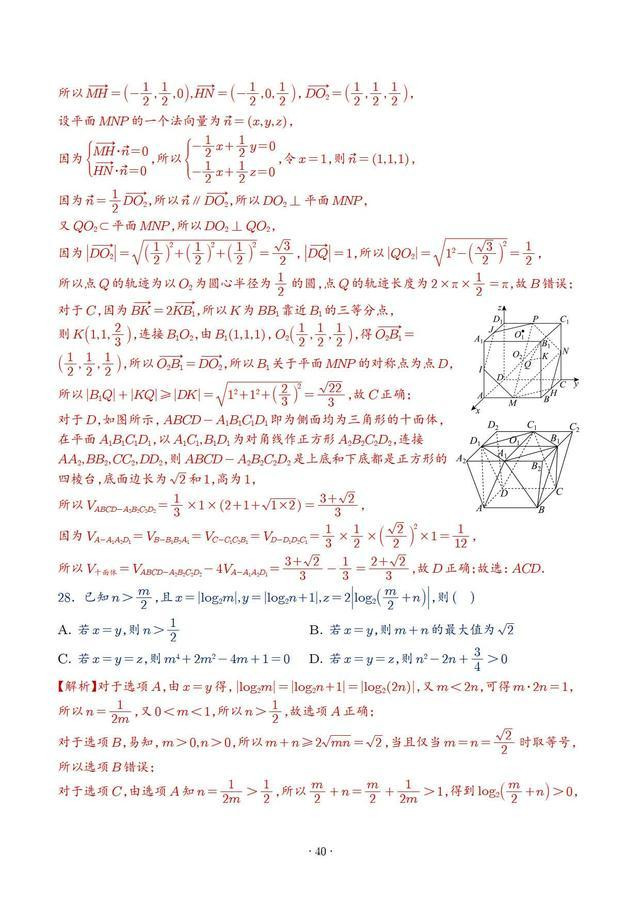 所以 $\overrightarrow{MH}=\left(-\frac{1}{2},\frac{1}{2},0\right),\overrightarrow{HN}=\left(-\frac{1}{2},0,\frac{1}{2}\right),\overrightarrow{DO_2}=\left(\frac{1}{2},\frac{1}{2},\frac{1}{2}\right)$，
设平面 MNP 的一个法向量为 $\vec{n}=(x,y,z)$，
因为 $\begin{cases}\overrightarrow{MH}\cdot\vec{n}=0\\\overrightarrow{HN}\cdot\vec{n}=0\end{cases}$，所以 $\begin{cases}-\frac{1}{2}x+\frac{1}{2}y=0\\-\frac{1}{2}x+\frac{1}{2}z=0\end{cases}$，令 $x=1$，则 $\vec{n}=(1,1,1)$，
因为 $\vec{n}=\frac{1}{2}\overrightarrow{DO_2}$，所以 $\vec{n}∥\overrightarrow{DO_2}$，所以 $DO_2⊥$ 平面 MNP，
又 $QO_2⊂$ 平面 MNP，所以 $DO_2⊥QO_2$，
因为 $|\overrightarrow{DO_2}|=\sqrt{\left(\frac{1}{2}\right)^2+\left(\frac{1}{2}\right)^2+\left(\frac{1}{2}\right)^2}=\frac{\sqrt{3}}{2}$，$|\overrightarrow{DQ}|=1$，所以 $|QO_2|=\sqrt{1^2-\left(\frac{\sqrt{3}}{2}\right)^2}=\frac{1}{2}$，
所以点 Q 的轨迹为以 $O_2$ 为圆心半径为 $\frac{1}{2}$ 的圆，点 Q 的轨迹长度为 $2×π×\frac{1}{2}=π$，故 B 错误；
对于 C，因为 $\overrightarrow{BK}=2\overrightarrow{KB_1}$，所以 K 为 $BB_1$ 靠近 $B_1$ 的三等分点，
则 $K\left(1,1,\frac{2}{3}\right)$，连接 $B_1O_2$，由 $B_1(1,1,1)$，$O_2\left(\frac{1}{2},\frac{1}{2},\frac{1}{2}\right)$，得 $\overrightarrow{O_2B_1}=$
$\left(\frac{1}{2},\frac{1}{2},\frac{1}{2}\right)$，所以 $\overrightarrow{O_2B_1}=\overrightarrow{DO_2}$，所以 $B_1$ 关于平面 MNP 的对称点为点 D，
所以 $|B_1Q|+|KQ|≥|DK|=\sqrt{1^2+1^2+\left(\frac{2}{3}\right)^2}=\frac{\sqrt{22}}{3}$，故 C 正确；
对于 D，如图所示，$ABCD-A_1B_1C_1D_1$ 即为侧面均为三角形的十面体，
在平面 $A_1B_1C_1D_1$，以 $A_1C_1,B_1D_1$ 为对角线作正方形 $A_2B_2C_2D_2$，连接
$AA_2,BB_2,CC_2,DD_2$，则 $ABCD-A_2B_2C_2D_2$ 是上底和下底都是正方形的
四棱台，底面边长为 $\sqrt{2}$ 和 1，高为 1，
所以 $V_{ABCD-A_2B_2C_2D_2}=\frac{1}{3}×1×(2+1+\sqrt{1×2})=\frac{3+\sqrt{2}}{3}$，
因为 $V_{A-A_1A_2D_1}=V_{B-B_2B_1A_1}=V_{C-C_1C_2B_1}=V_{D-D_1D_2C_1}=\frac{1}{3}×\frac{1}{2}×\left(\frac{\sqrt{2}}{2}\right)^2×1=\frac{1}{12}$，
所以 $V_{十面体}=V_{ABCD-A_2B_2C_2D_2}-4V_{A-A_1A_2D_1}=\frac{3+\sqrt{2}}{3}-\frac{1}{3}=\frac{2+\sqrt{2}}{3}$，故 D 正确；故选：ACD.
28. 已知 $n>\frac{m}{2}$，且 $x=|\log_2 m|,y=|\log_2 n+1|,z=2\left|\log_2\left(\frac{m}{2}+n\right)\right|$，则（ ）
A. 若 $x=y$，则 $n>\frac{1}{2}$ B. 若 $x=y$，则 $m+n$ 的最大值为 $\sqrt{2}$
C. 若 $x=y=z$，则 $m^4+2m^2-4m+1=0$ D. 若 $x=y=z$，则 $n^2-2n+\frac{3}{4}>0$
【解析】对于选项 A，由 $x=y$ 得，$|\log_2 m|=|\log_2 n+1|=|\log_2(2n)|$，又 $m<2n$，可得 $m\cdot 2n=1$，
所以 $n=\frac{1}{2m}$，又 $0<m<1$，所以 $n>\frac{1}{2}$，故选项 A 正确；
对于选项 B，易知，$m>0,n>0$，所以 $m+n≥2\sqrt{mn}=\sqrt{2}$，当且仅当 $m=n=\frac{\sqrt{2}}{2}$ 时取等号，
所以选项 B 错误；
对于选项 C，由选项 A 知 $n=\frac{1}{2m}>\frac{1}{2}$，所以 $\frac{m}{2}+n=\frac{m}{2}+\frac{1}{2m}>1$，得到 $\log_2\left(\frac{m}{2}+n\right)>0$，
· 40 ·